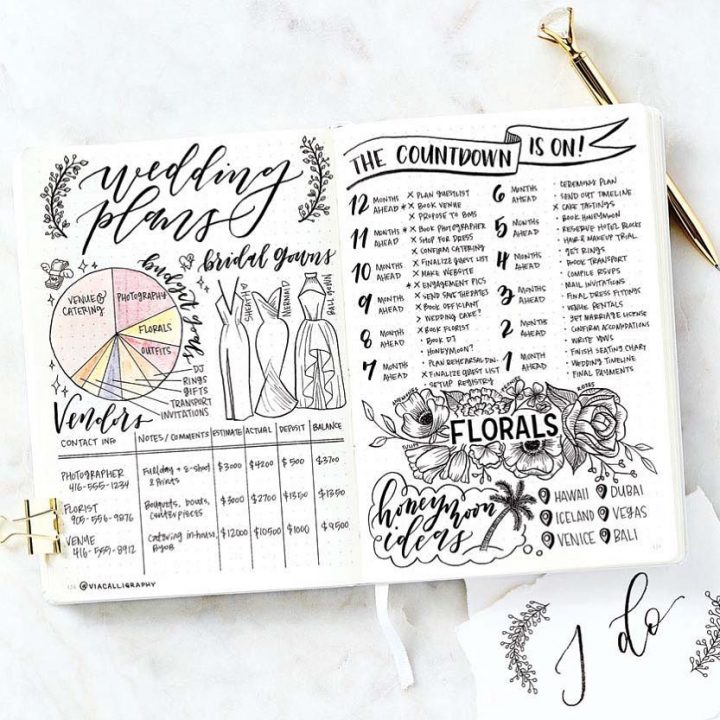 wedding
plans
budget goals
VENUE &
CATERING
PHOTOGRAPHY
FLORALS
OUTFITS
DJ
RINGS
GIFTS
TRANSPORT
INVITATIONS
bridal gowns
SHEATH
MERMAID
BALL GOWN
Vendors
CONTACT INFO NOTES / COMMENTS ESTIMATE ACTUAL DEPOSIT BALANCE
PHOTOGRAPHER
416-555-1234
Full day + E-shoot
& Prints
$3000 $4200 $500 $3700
FLORIST
905-556-9876
Bouquets, bouts,
centerpieces
$3000 $2700 $1350 $1350
VENUE
416-555-8912
Catering in-house,
BYOB
$12000 $10500 $1000 $9500
@VIACALLIGRAPHY
THE COUNTDOWN IS ON!
12 MONTHS AHEAD
X PLAN GUESTLIST
* X BOOK VENUE
X PROPOSE TO BMS
11 MONTHS AHEAD
* X BOOK PHOTOGRAPHER
X SHOP FOR DRESS
• CONFIRM CATERING
10 MONTHS AHEAD
X FINALIZE GUEST LIST
X MAKE WEBSITE
* X ENGAGEMENT PICS
9 MONTHS AHEAD
X SEND SAVE THE DATES
X BOOK OFFICIANT
• WEDDING CAKE?
8 MONTHS AHEAD
X BOOK FLORIST
• BOOK DJ
• HONEYMOON?
7 MONTHS AHEAD
• PLAN REHEARSAL DIN.
X FINALIZE GUEST LIST
• SETUP REGISTRY
6 MONTHS AHEAD
• CEREMONY PLAN
• SEND OUT TIMELINE
X CAKE TASTINGS
5 MONTHS AHEAD
• BOOK HONEYMOON
• RESERVE HOTEL BLOCKS
• HAIR & MAKEUP TRIAL
4 MONTHS AHEAD
• GET RINGS
• BOOK TRANSPORT
• COMPILE RSVPS
3 MONTHS AHEAD
• MAIL INVITATIONS
• FINAL DRESS FITTINGS
• VENUE RENTALS
2 MONTHS AHEAD
• GET MARRIAGE LICENSE
• CONFIRM ACCOMODATIONS
• WRITE VOWS
1 MONTH AHEAD
• FINISH SEATING CHART
• WEDDING TIMELINE
• FINAL PAYMENTS
ANEMONES
ROSES
FLORALS
honeymoon
ideas
HAWAII DUBAI
ICELAND VEGAS
VENICE BALI
I do